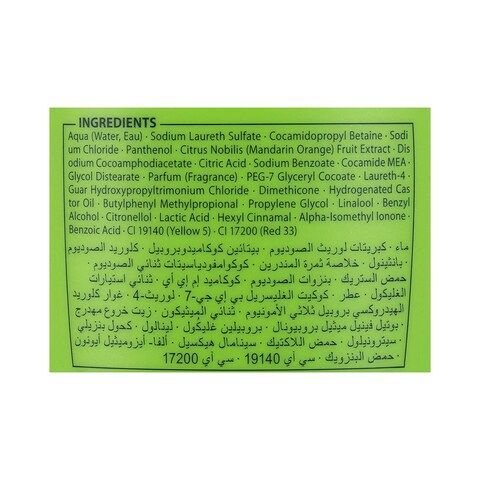 INGREDIENTS
Aqua (Water, Eau) · Sodium Laureth Sulfate · Cocamidopropyl Betaine · Sodi
um Chloride · Panthenol · Citrus Nobilis (Mandarin Orange) Fruit Extract · Dis
odium Cocoamphodiacetate · Citric Acid · Sodium Benzoate · Cocamide MEA ·
Glycol Distearate · Parfum (Fragrance) · PEG-7 Glyceryl Cocoate · Laureth-4 ·
Guar Hydroxypropyltrimonium Chloride · Dimethicone · Hydrogenated Cas
tor Oil · Butylphenyl Methylpropional · Propylene Glycol · Linalool · Benzyl
Alcohol · Citronellol · Lactic Acid · Hexyl Cinnamal · Alpha-Isomethyl Ionone ·
Benzoic Acid · CI 19140 (Yellow 5) · CI 17200 (Red 33)
ماء · كبريتات لوريث الصوديوم · بيتائين كوكاميدوبروبيل · كلوريد الصوديوم
· بانثينول · خلاصة ثمرة المندرين · كوكوامفودياسيتات ثنائي الصوديوم ·
حمض الستريك · بنزوات الصوديوم · كوكاميد إم إي أي · ثنائي استيارات
الغليكول · عطر · كوكيت الغليسريل بي إي جي-7 · لوريث-4 · غوار كلوريد
الهيدروكسي بروبيل ثلاثي الأمونيوم · ثنائي الميثيكون · زيت خروع مهدرج
· بوتيل فينيل ميثيل بروبيونال · بروبيلين غليكول · لينالول · كحول بنزيلي
· سيترونيلول · حمض اللاكتيك · سينامال هيكسيل · ألفا- أيزوميثيل أيونون
· حمض البنزويك · سي أي 19140 · سي أي 17200